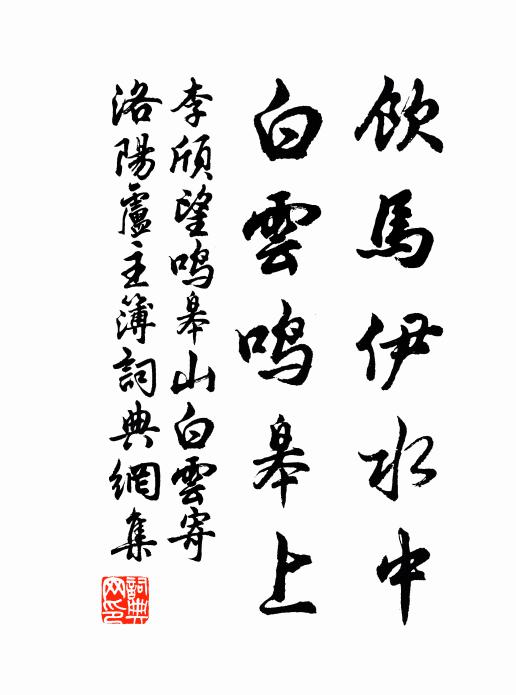 飲馬伊水中
白雲鳴皋上
李頎望鳴皋山白雲寄
洛陽盧主簿詞典網集
詞典
网印